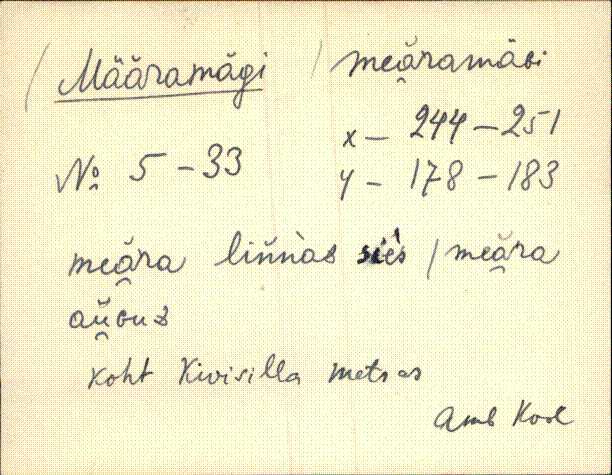 / Määramägi / meäramäGi
x – 244 – 251
No 5 – 33
y – 178 – 183
meära liňnàs siès / meära
aŭGus
koht Kivisilla metsas
Amb Kool